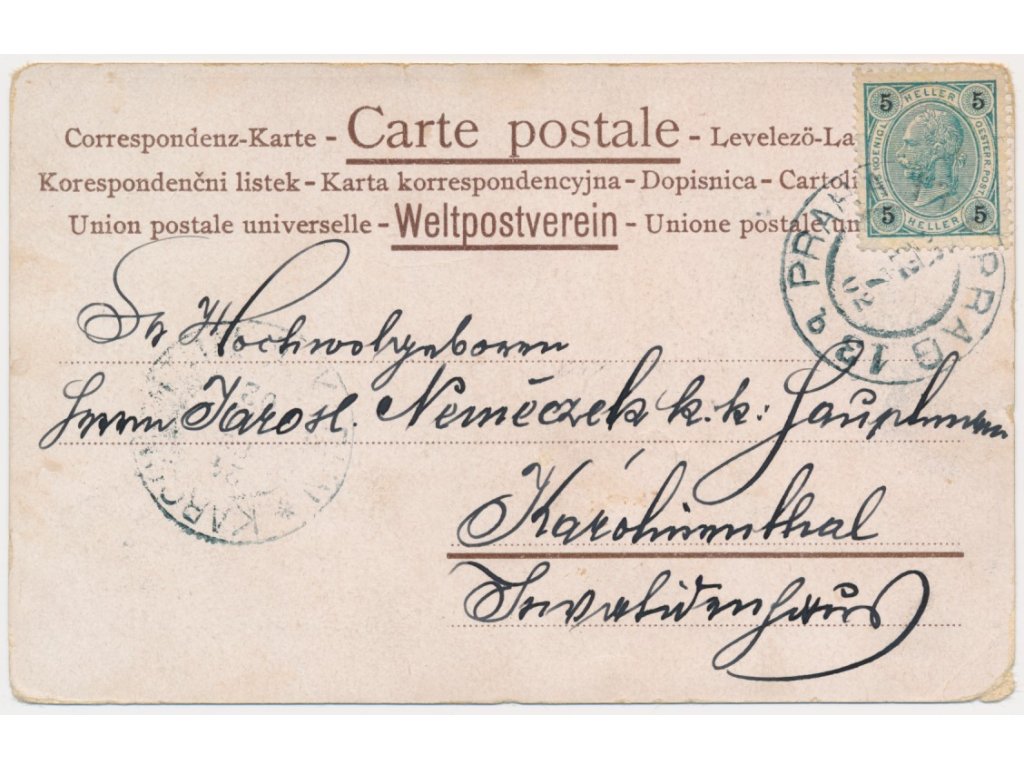 Correspondenz-Karte - Carte postale - Levelezö-La
Korespondenčni listek - Karta korrespondencyjna - Dopisnica - Cartoli
Union postale universelle - Weltpostverein - Unione postale un
5 HELLER 5
KAIS. KOENIGL. OESTERR. POST
5 HELLER 5
PRAHA PRAG 13 q
02
Sr Hochwolgeboren
Herrn Jarosl. Němėczek k. k: Hauptmann
Karolinenthal
Invalidenhaus
KAROL
02